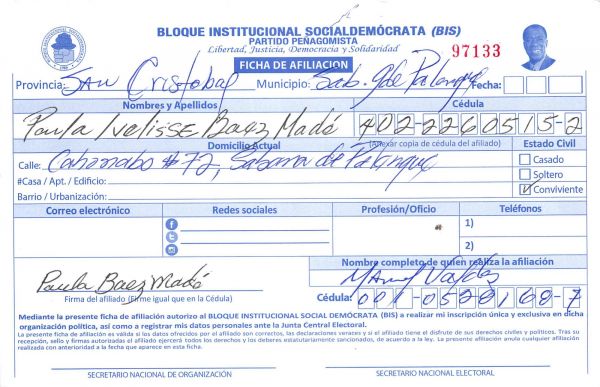 BLOQUE INSTITUCIONAL SOCIALDEMÓCRATA (BIS)
PARTIDO PEÑAGOMISTA
Libertad, Justicia, Democracia y Solidaridad
97133
FICHA DE AFILIACION
Provincia: San Cristobal Municipio: Sab. Gde Palenque Fecha:
Nombres y Apellidos Cédula
Paula Ivelisse Baez Madé 402-2260515-2
Domicilio Actual (Anexar copia de cédula del afiliado) Estado Civil
Calle: #72, Sabana de Palenque Casado
#Casa / Apt. / Edificio: Soltero
Barrio / Urbanización: Conviviente
Correo electrónico Redes sociales Profesión/Oficio Teléfonos
1)
2)
Nombre completo de quien realiza la afiliación
Paula Baez Madé Manuel Valdez
Firma del afiliado (Firme igual que en la Cédula) Cédula: 001-0528168-7
Mediante la presente ficha de afiliación autorizo al BLOQUE INSTITUCIONAL SOCIAL DEMÓCRATA (BIS) a realizar mi inscripción única y exclusiva en dicha
organización política, así como a registrar mis datos personales ante la Junta Central Electoral.
La presente ficha de afiliación es válida si los datos ofrecidos por el afiliado son correctos, las declaraciones veraces y si el afiliado tiene el disfrute de sus derechos civiles y políticos. Tras su
recepción, sello y firmas autorizadas el afiliado ejercerá todos los derechos y los deberes estatutariamente sancionados, de acuerdo a la ley. La presente afiliación anula cualquier afiliación
realizada con anterioridad a la fecha que aparece en esta ficha.
SECRETARIO NACIONAL DE ORGANIZACIÓN SECRETARIO NACIONAL ELECTORAL